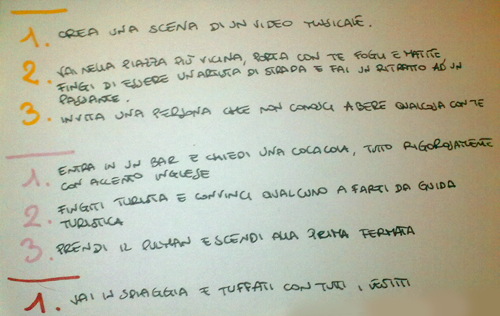 1. CREA UNA SCENA DI UN VIDEO MUSICALE.
2. VAI NELLA PIAZZA PIÙ VICINA, PORTA CON TE FOGLI E MATITE,
FINGI DI ESSERE UN'ARTISTA DI STRADA E FAI UN RITRATTO AD UN
PASSANTE.
3. INVITA UNA PERSONA CHE NON CONOSCI A BERE QUALCOSA CON TE
1. ENTRA IN UN BAR E CHIEDI UNA COCACOLA, TUTTO RIGOROSAMENTE
CON ACCENTO INGLESE
2. FINGITI TURISTA E CONVINCI QUALCUNO A FARTI DA GUIDA
TURISTICA
3. PRENDI IL PULMAN E SCENDI ALLA PRIMA FERMATA
1. VAI IN SPIAGGIA E TUFFATI CON TUTTI I VESTITI